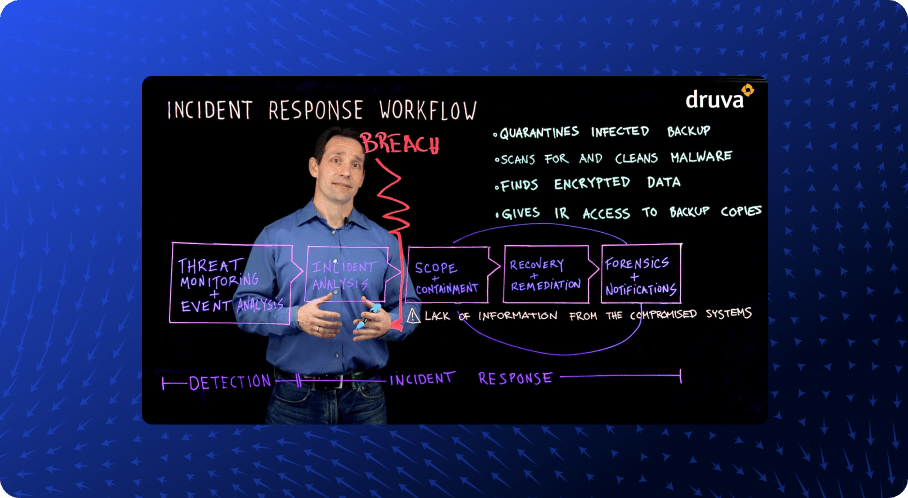 druva
INCIDENT RESPONSE WORKFLOW
BREACH
•QUARANTINES INFECTED BACKUP
•SCANS FOR AND CLEANS MALWARE
•FINDS ENCRYPTED DATA
•GIVES IR ACCESS TO BACKUP COPIES
THREAT
MONITORING
+
EVENT ANALYSIS
INCIDENT
ANALYSIS
SCOPE
+
CONTAINMENT
RECOVERY
+
REMEDIATION
FORENSICS
+
NOTIFICATIONS
! LACK OF INFORMATION FROM THE COMPROMISED SYSTEMS
DETECTION
INCIDENT RESPONSE